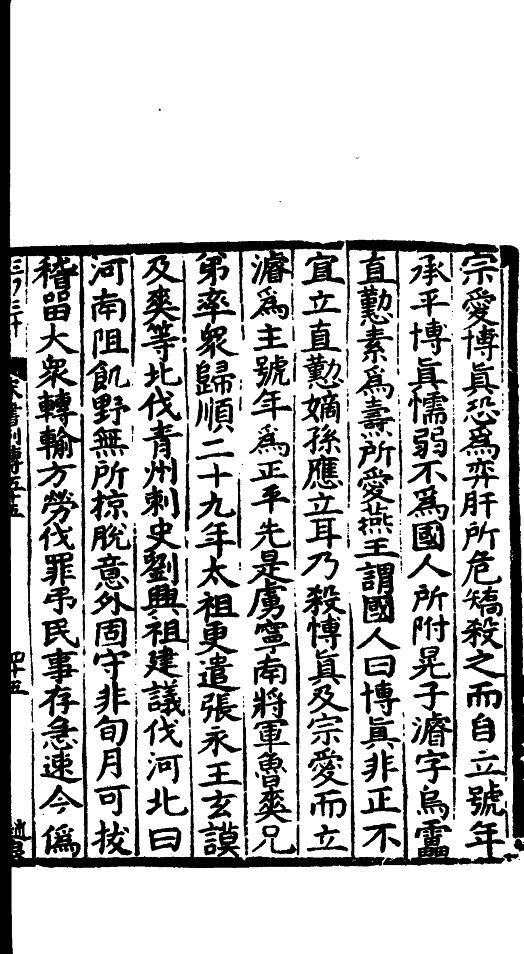 宗愛博眞恐爲弈肝所危矯殺之而自立號年
承平博眞懦弱不爲國人所附晃子濬字烏雷
直懃素爲燾所愛燕王謂國人曰博眞非正不
宜立直懃嫡孫應立耳乃殺博眞及宗愛而立
濬爲主號年爲正平先是虜寧南將軍魯爽兄
弟率衆歸順二十九年太祖更遣張永王玄謨
及爽等北伐青州刺史劉興祖建議伐河北曰
河南阻飢野無所掠脫意外固守非旬月可拔
稽留大衆轉輸方勞伐罪弔民事存急速今僞
宋書列傳五十五
四十五